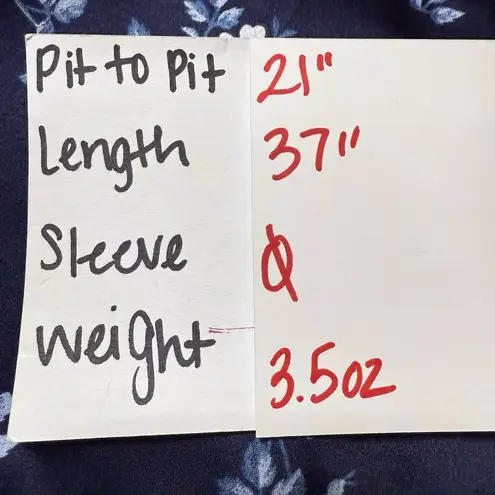 Pit to Pit 21"
Length 37"
Sleeve Ø
weight 3.5oz